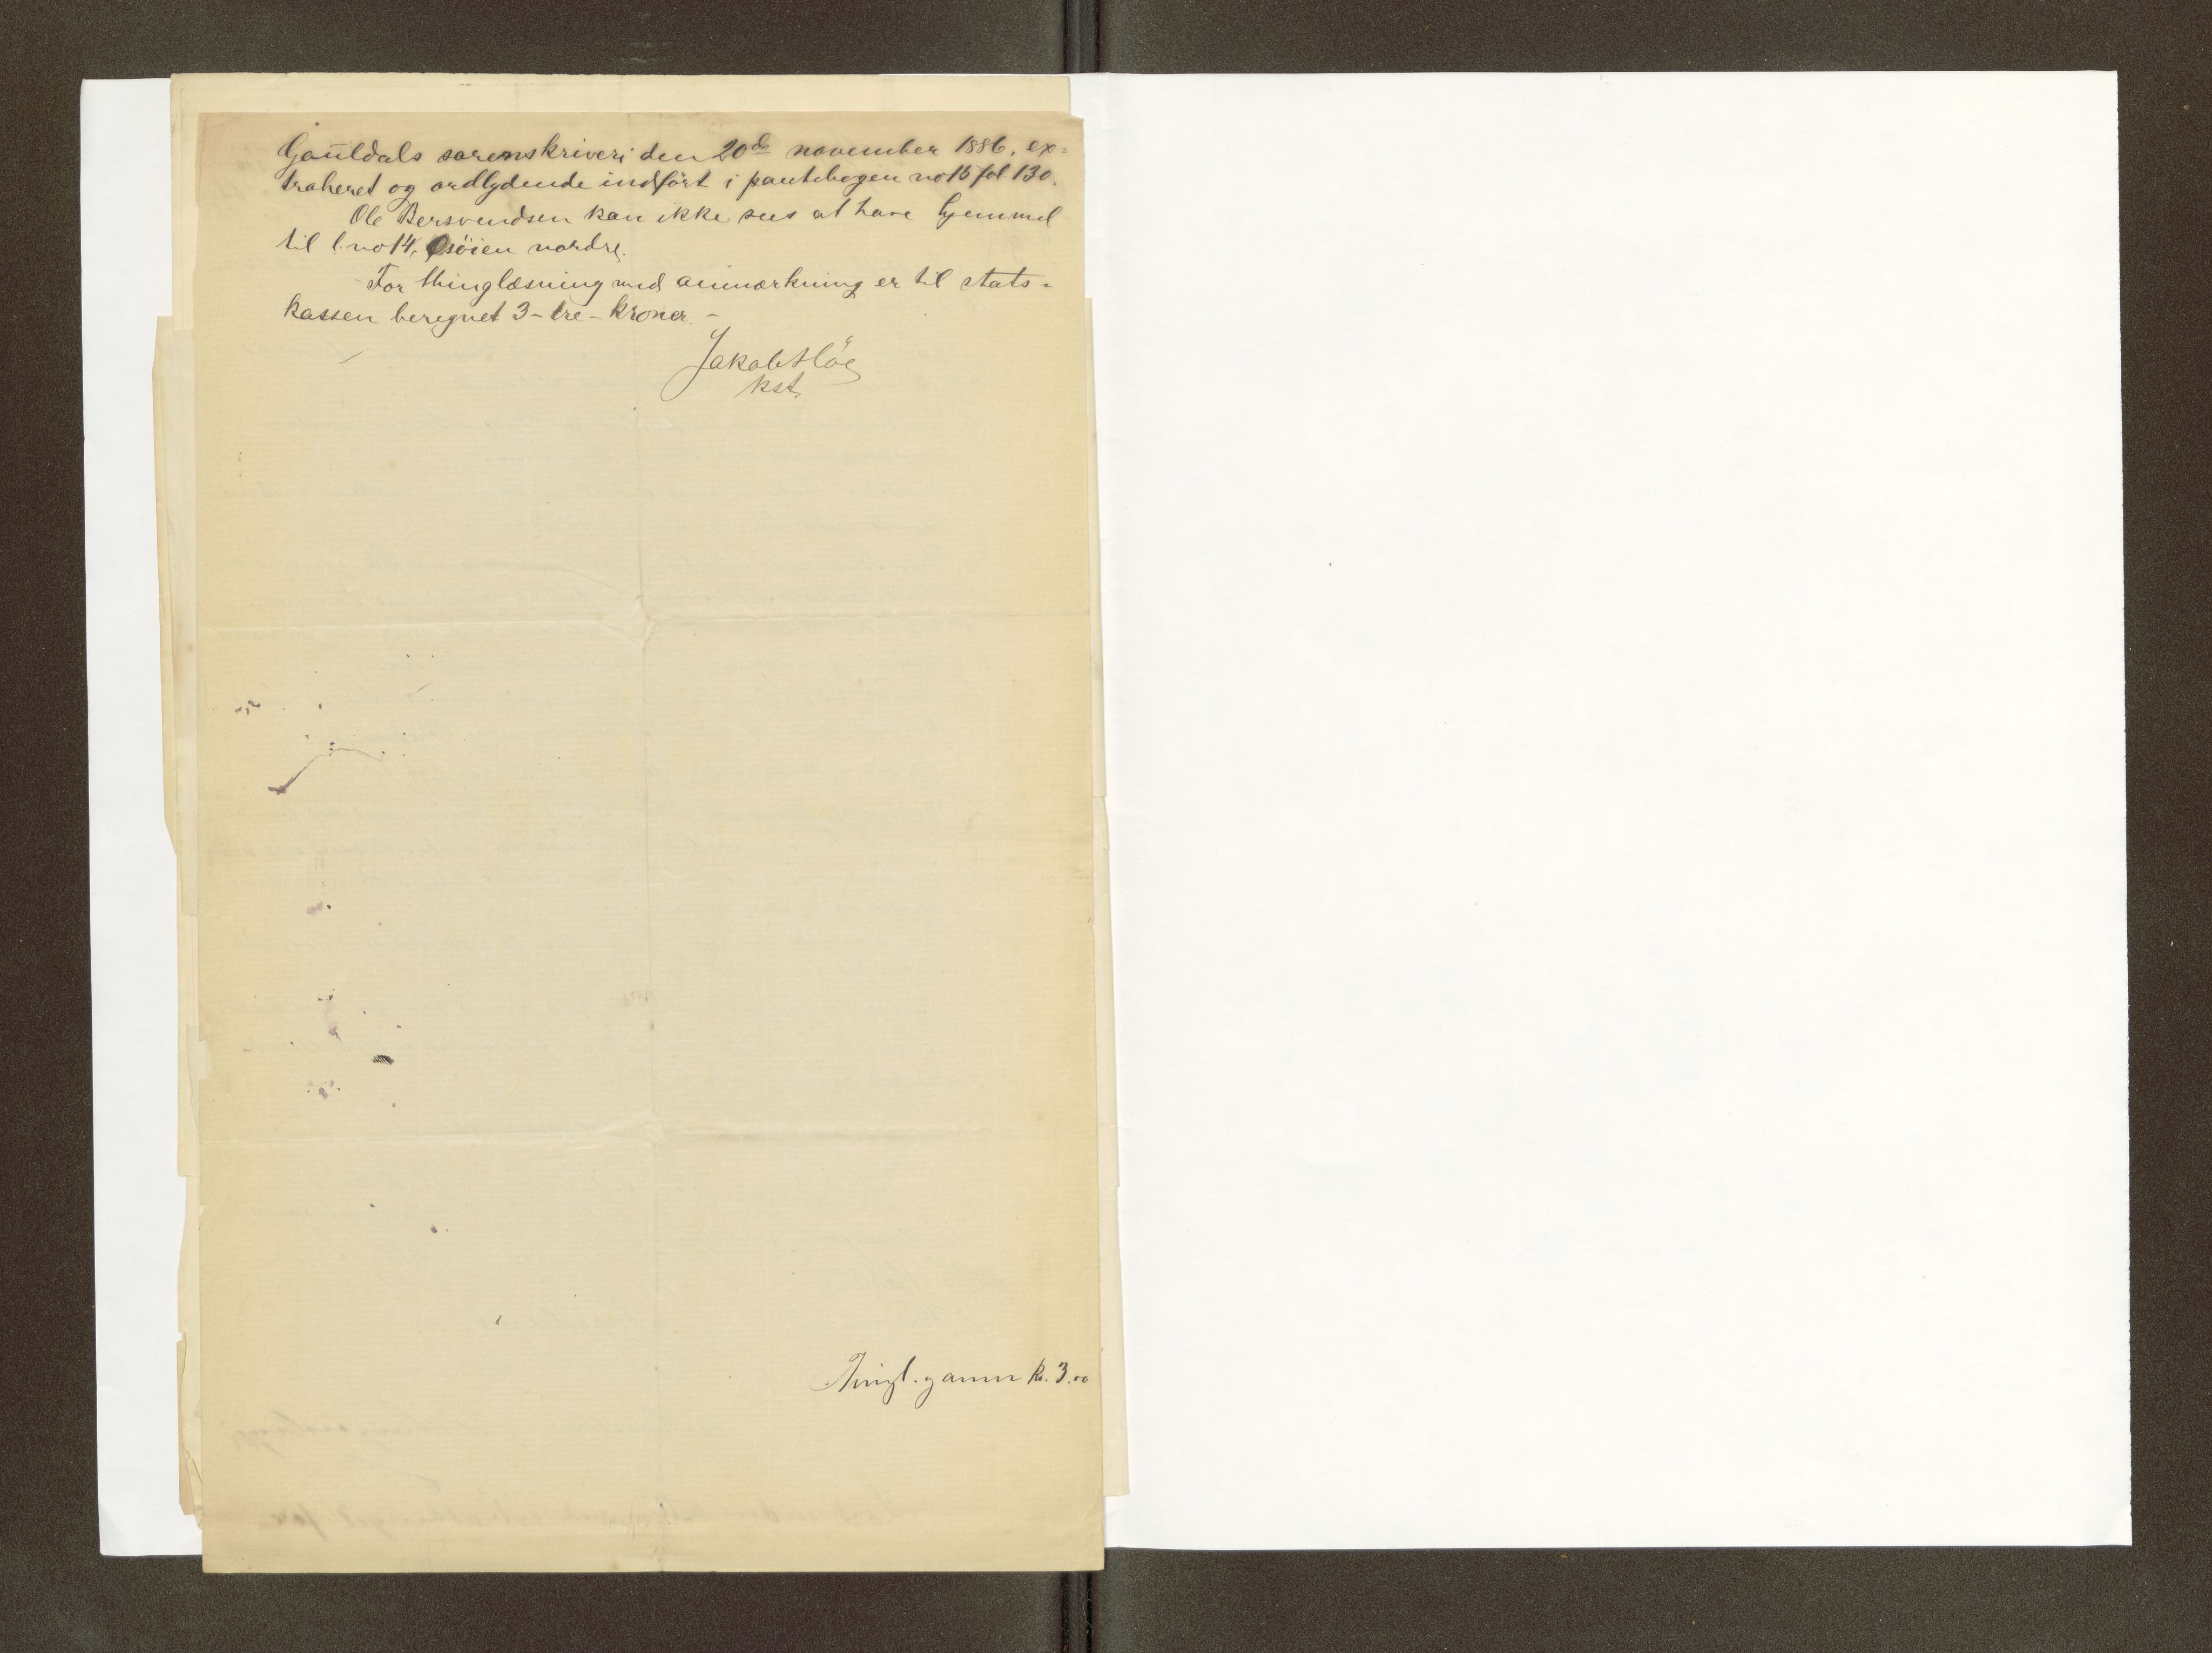 Gauldals sorenskriveri den 20de november 1886, ex-
traheret og ordlydende indført i pantebogen no 15 fol. 130.
Ole Bersvendsen kan ikke sees at have hjemmel
til l. no 14, Osöien nordre.
For thinglæsning med anmærkning er til stats-
kassen beregnet 3 - tre - kroner. -
Jakob Höe
kst.
Thingl. g anm kr. 3.00